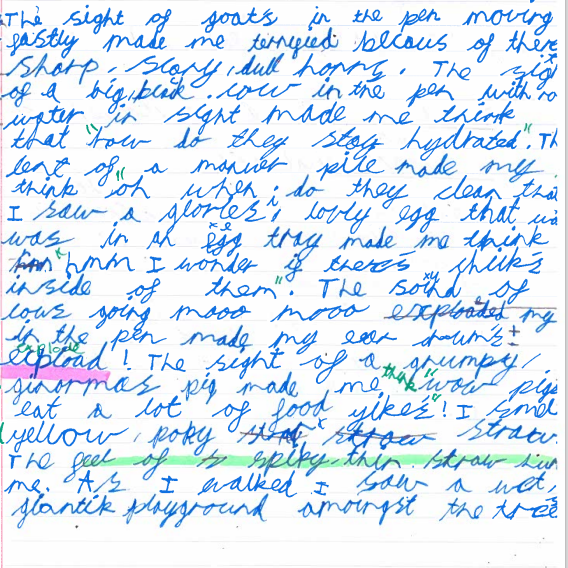 The sight of goats in the pen moving
fastly made me terryfied becous of there
sharp, stony, dull horns. The sigh
of a big, pink, cow in the pen with no
water in sight made me think
that "how do they stay hydrated". Th
of a manuer pile made my
think "oh when do they clean tha
I saw a glories, lovly egg that wa
was in an egg tray made me think
"hmm I wonder if there's chiks
inside of them". The sound of
cows going mooo mooo my
in the pen made my ear
expload! The sight of a grumpy,
ginormas pig made me think "wow pigs
eat a lot of food yikes"! I smel
yellow, poky straw.
The geel of a spiky, thin straw hur
me. As I walked I saw a wet,
giantik playground amoungst the tree